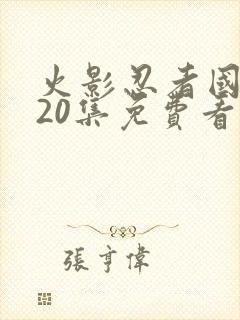 火影忍者國
20集免費看
張亨偉